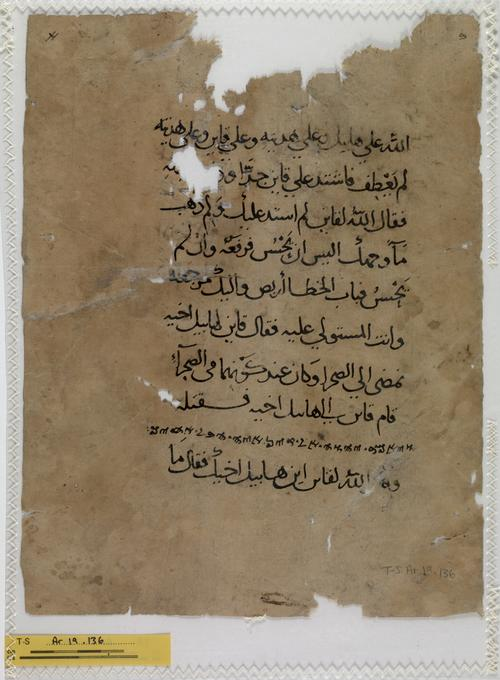 الله على هابيل وعلى هديته وعلى قاين وعلى هديته
لم يعطف فاشتد علي قاين جدا
فقال الله لقاين لم اشتد عليك ولم ذهب
مآ وجهك اليس ان تحسن فرفعة وان لم
تحسن فباب الخطا اربص واليك مرجعه
وانت المستولي عليه فقال قاين لهابيل اخيه
نمضي الي الصحرا وكان عند كونهما في الصحرآء
قام قاين الي هابيل اخيه فقتله
الله لقاين اين هابيل اخيك فقال ما
T-S Ar.19.136
T-S Ar.19.136